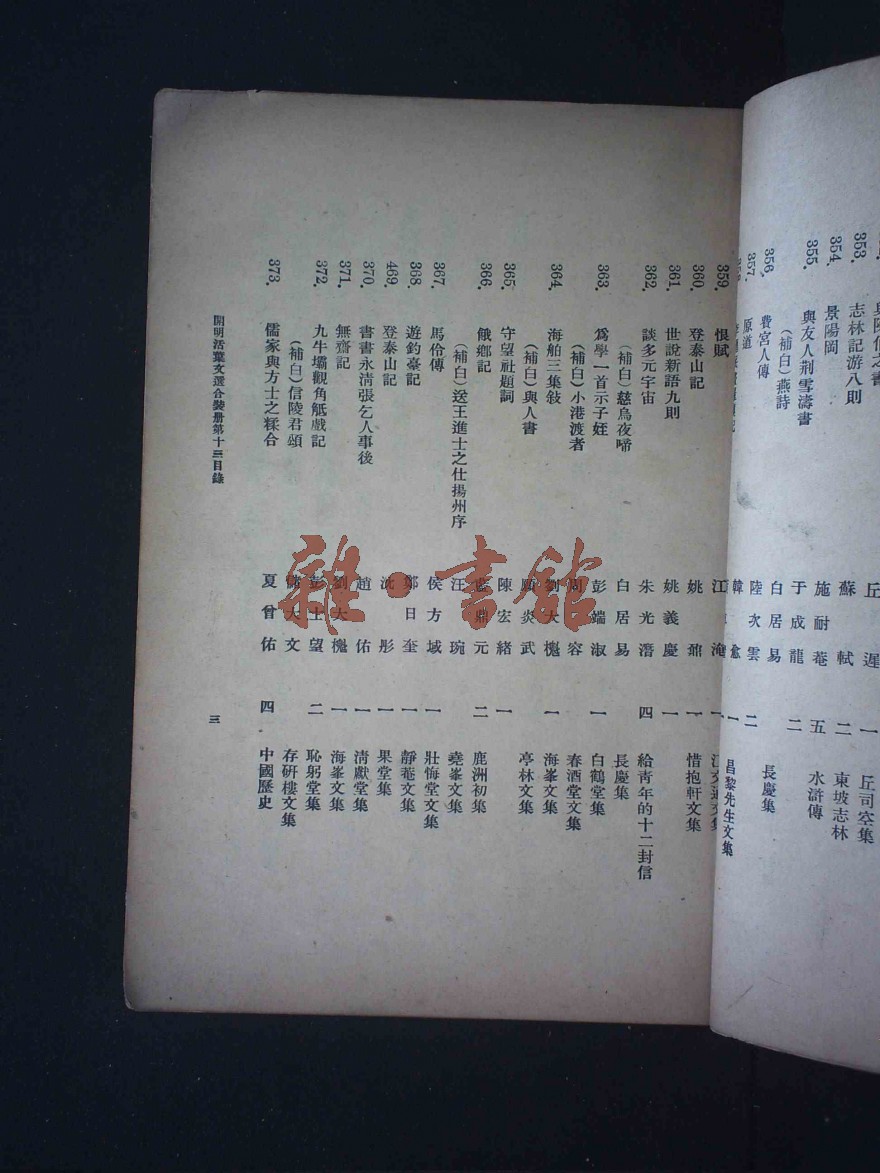 353. 志林記游八則 蘇軾 二 東坡志林
354. 景陽岡 施耐菴 五 水滸傳
355. 與友人荆雪濤書 于成龍 二
(補白)燕詩 白居易 長慶集
356. 費宮人傳 陸次雲 二
357. 原道 韓愈 一 昌黎先生文集
359. 恨賦 江淹 一
360. 登泰山記 姚鼐 一 惜抱軒文集
361. 世說新語九則 姚義慶 一
362. 談多元宇宙 朱光潛 四 給青年的十二封信
(補白)慈烏夜啼 白居易 長慶集
363. 爲學一首示子姪 彭端淑 一 白鶴堂集
(補白)小港渡者 周容 春酒堂文集
364. 海舶三集敍 劉大櫆 一 海峯文集
(補白)與人書 顧炎武 亭林文集
365. 守望社題詞 陳宏緒 一
366. 餓鄉記 藍鼎元 二 鹿洲初集
(補白)送王進士之仕揚州序 汪琬 堯峯文集
367. 馬伶傳 侯方域 一 壯悔堂文集
368. 遊釣臺記 鄭日奎 一 靜菴文集
469. 登泰山記 沈彤 一 果堂集
370. 書書永淸張乞人事後 趙佑 一 淸獻堂集
371. 無齋記 劉大櫆 一 海峯文集
372. 九牛壩觀角觝戲記 彭士望 二 恥躬堂集
(補白)信陵君頌 儲大文 存硏樓文集
373. 儒家與方士之糅合 夏曾佑 四 中國歷史
開明活葉文選合裝册第十三目錄 三
雜·書館